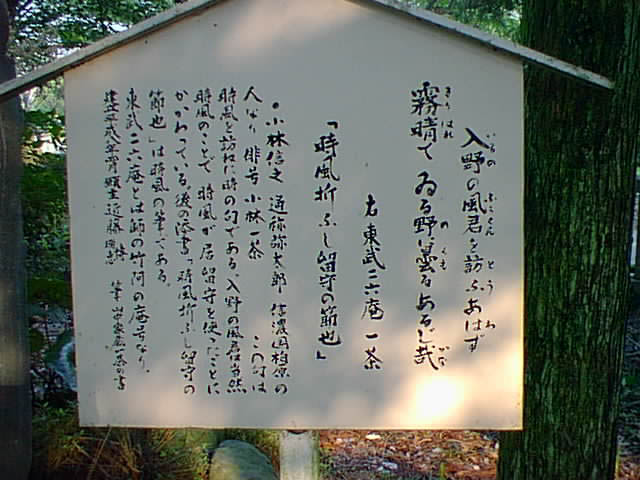 いるの ふくん とうわ
入野の風君を訪ふあはず
きりはれ の くも かな
霧晴て ゐる野に曇るあるじ哉
右 東武二六庵 一茶
「時風折ふし留守の節也」
●小林信之 通称弥太郎 信濃国柏原の
人なり 俳号 小林一茶 この句は
時風を訪ねた時の句である、入野の風君は当然
時風のことで 時風が居留守を使ったことに
かかわっている。後の添書の「時風折ふし留守の
節也」は時風の筆である。
東武二六庵とは師の竹阿の庵号なり。